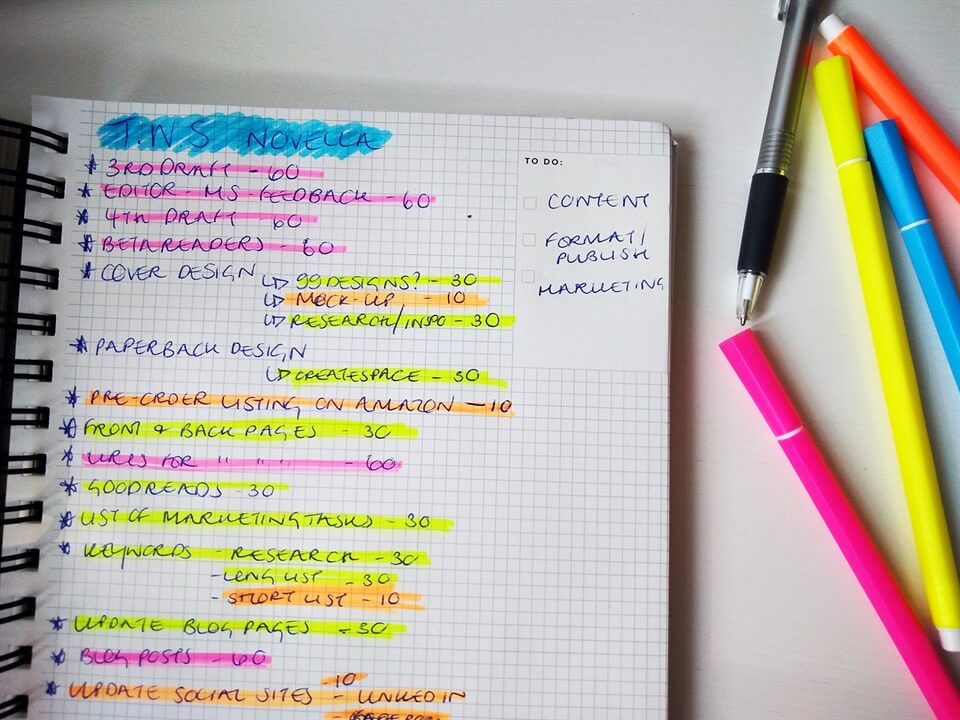 T.W.S NOVELLA
* 3RD DRAFT - 60
* EDITOR - MS FEEDBACK - 60
* 4TH DRAFT - 60
* BETAREADERS - 60
* COVER DESIGN
↳ 99DESIGNS? - 30
↳ MOCK-UP - 10
↳ RESEARCH/INSPO - 30
* PAPERBACK DESIGN
↳ CREATESPACE - 30
* PRE-ORDER LISTING ON AMAZON - 10
* FRONT & BACK PAGES - 30
* URLS FOR " " " - 60
* GOODREADS - 30
* LIST OF MARKETING TASKS - 30
* KEYWORDS - RESEARCH - 30
- LONG LIST - 30
- SHORT LIST - 10
* UPDATE BLOG PAGES - 30
* BLOG POSTS - 60
* UPDATE SOCIAL SITES - 10 - LINKEDIN
TO DO:
CONTENT
FORMAT/
PUBLISH
MARKETING